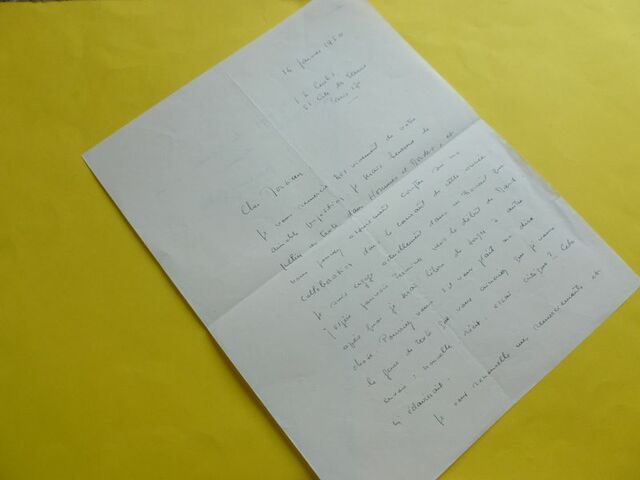 16 janvier 1950
Cher Monsieur
Je vous remercie très vivement de votre
aimable proposition. Je serais heureux de
publier un texte dans Hommes et Mondes, et
vous pouvez certainement compter sur ma
collaboration dans le courant de cette année.
Je suis engagé actuellement dans un travail que
j'espère pouvoir terminer vers le début de l'été
après quoi je serai libre de songer à autre
chose. Pourriez-vous s'il vous plaît me dire
le genre de texte que vous aimeriez que je vous
envoie : nouvelle, récit, essai critique ? Cela
m'éclairerait.
Je vous renouvelle mes remerciements, et